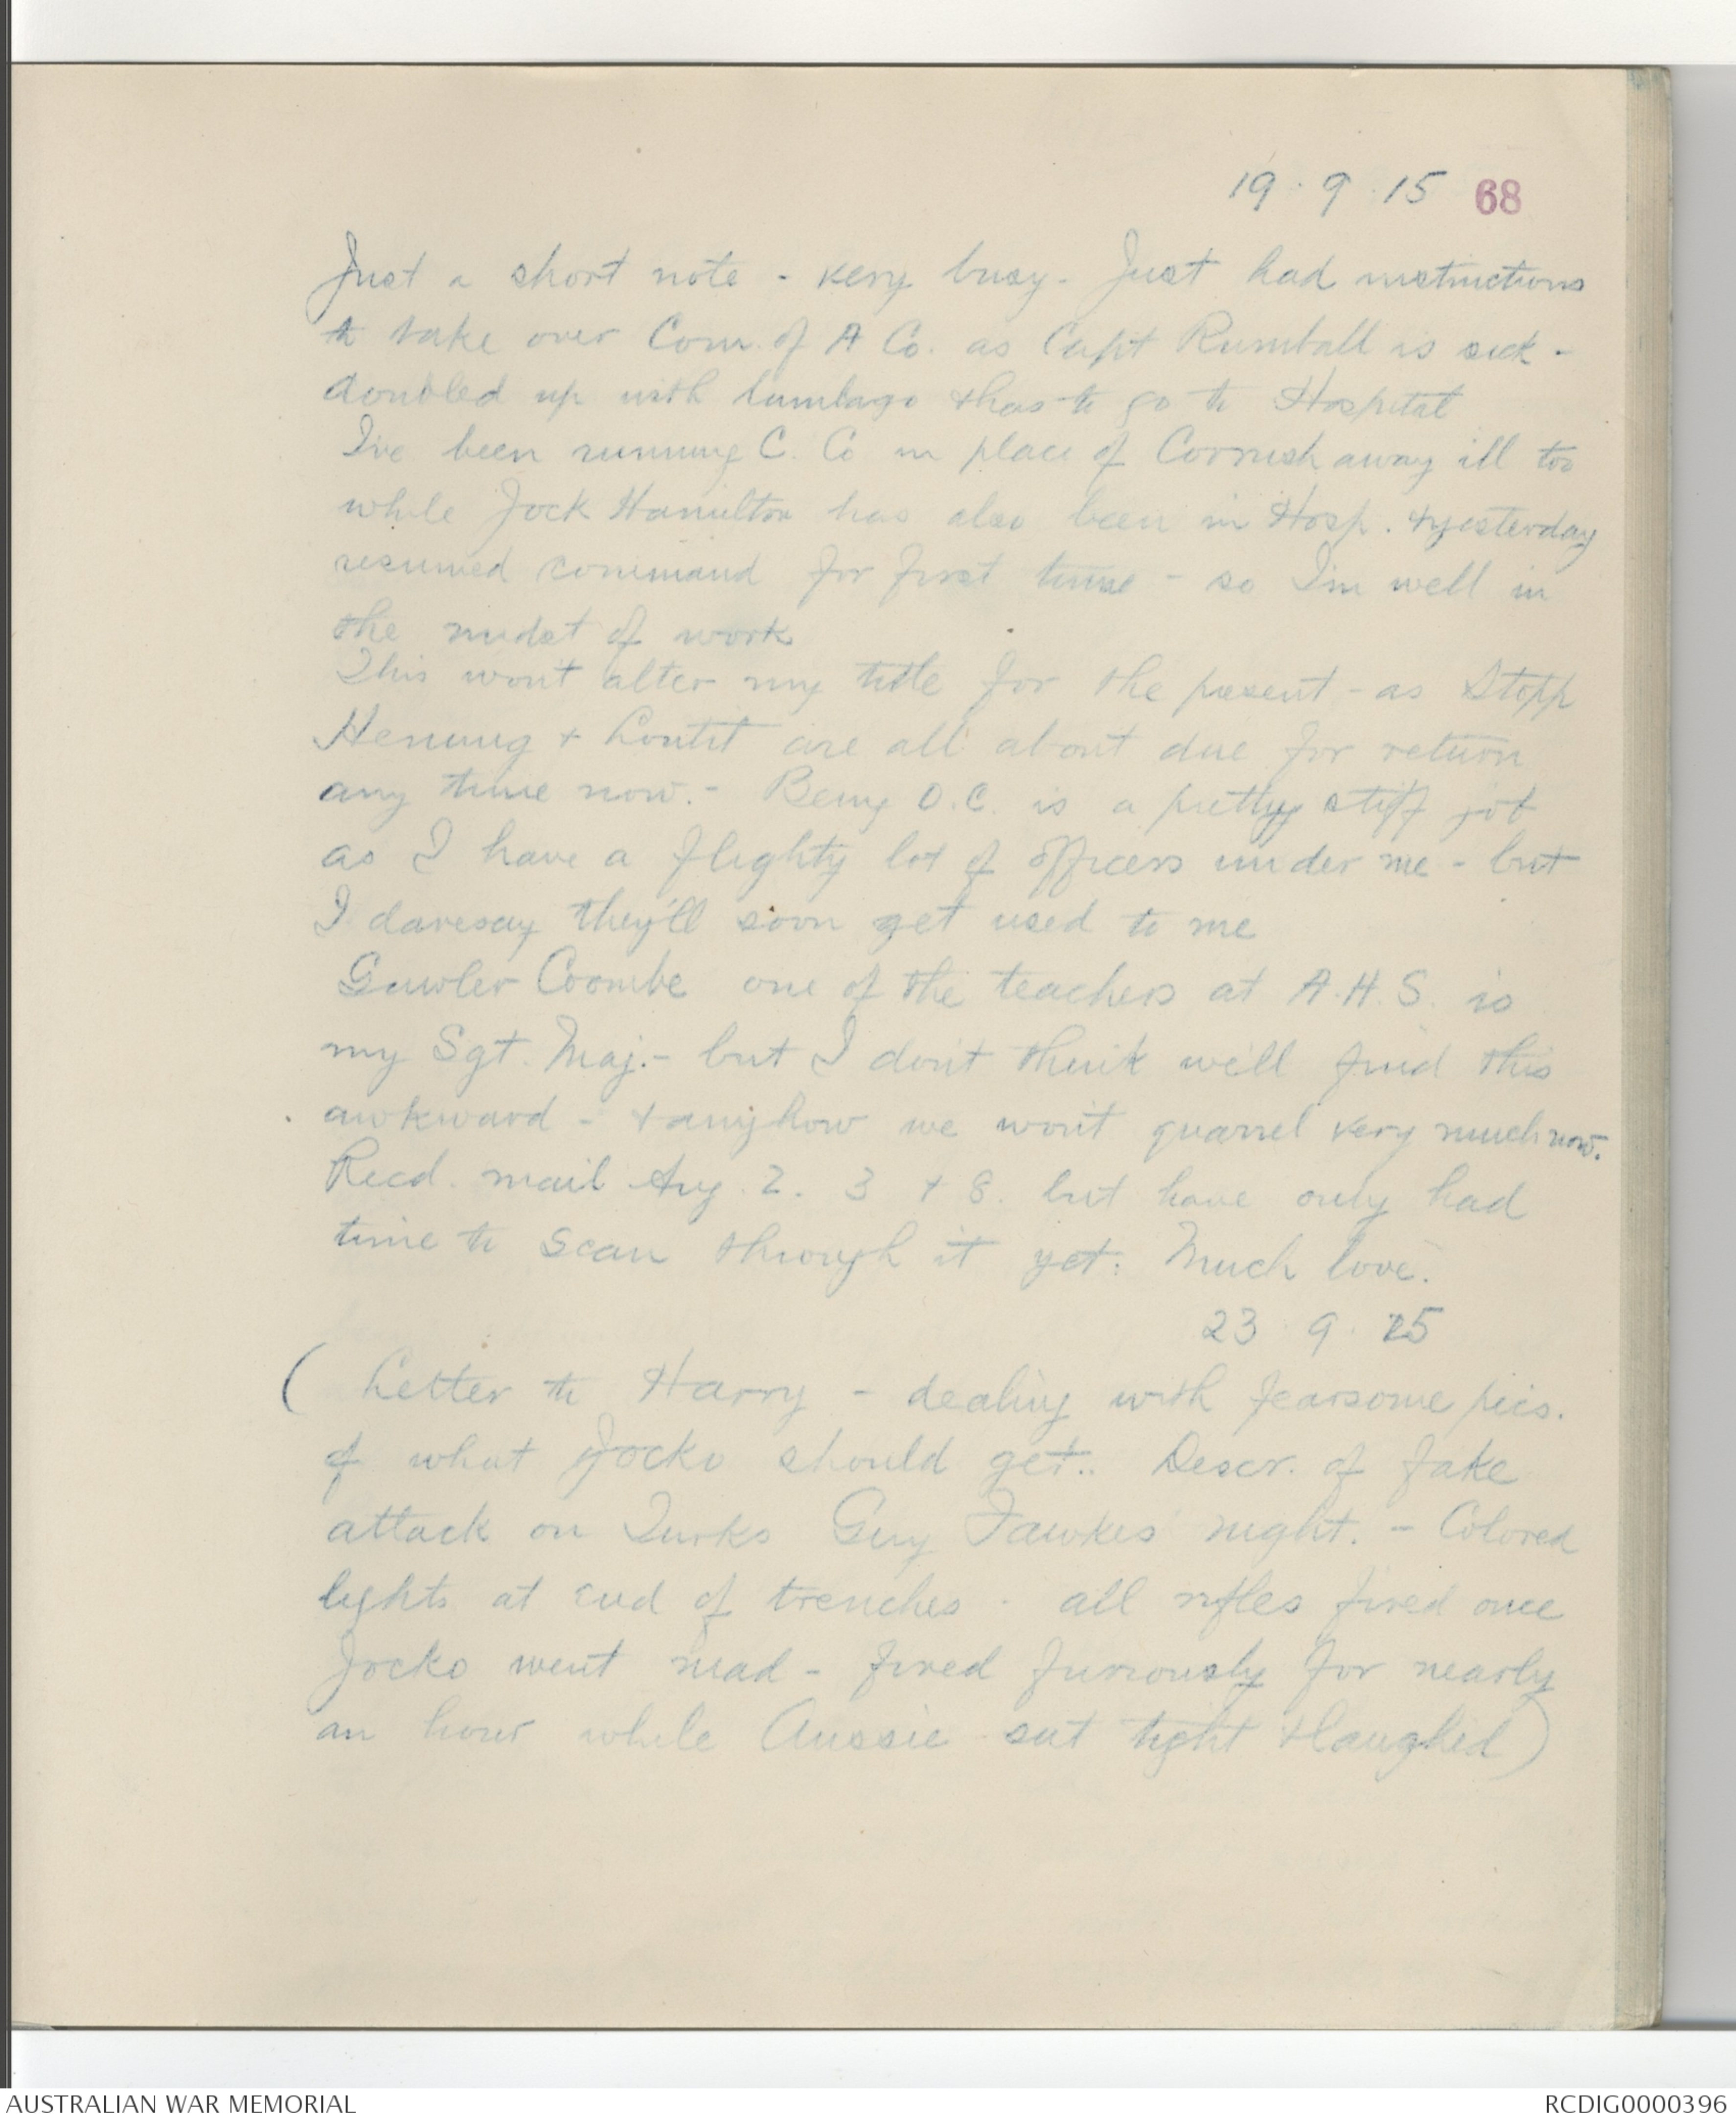 19 . 9 . 15 68
Just a short note - very busy - Just had instructions
to take over Com. of A Co. as Capt Rumball is sick -
doubled up with lumbago & has to go to Hospital
I've been running C. Co in place of Cornish away ill too
while Jock Hamilton has also been in Hosp. & yesterday
resumed command for first time - so I'm well in
the midst of work
This won't alter my title for the present - as Stopp
Henning & Loutit are all about due for return
any time now. - Being O.C. is a pretty stiff job
as I have a flighty lot of officers under me - but
I daresay they'll soon get used to me
Gawler Coombe one of the teachers at A.H.S. is
my Sgt. Maj. - but I don't think we'll find this
awkward - & anyhow we won't quarrel very much now.
Recd. mail Aug. 2. 3 & 8. but have only had
time to scan through it yet: Much love.
23 . 9 . 15
( Letter to Harry - dealing with fearsome pics.
of what Jocko should get.. Descr. of fake
attack on Turks Guy Fawkes' night. - Colored
lights at end of trenches - all rifles fired once
Jocko went mad - fired furiously for nearly
an hour while Aussie sat tight & laughed )
AUSTRALIAN WAR MEMORIAL
RCDIG0000396